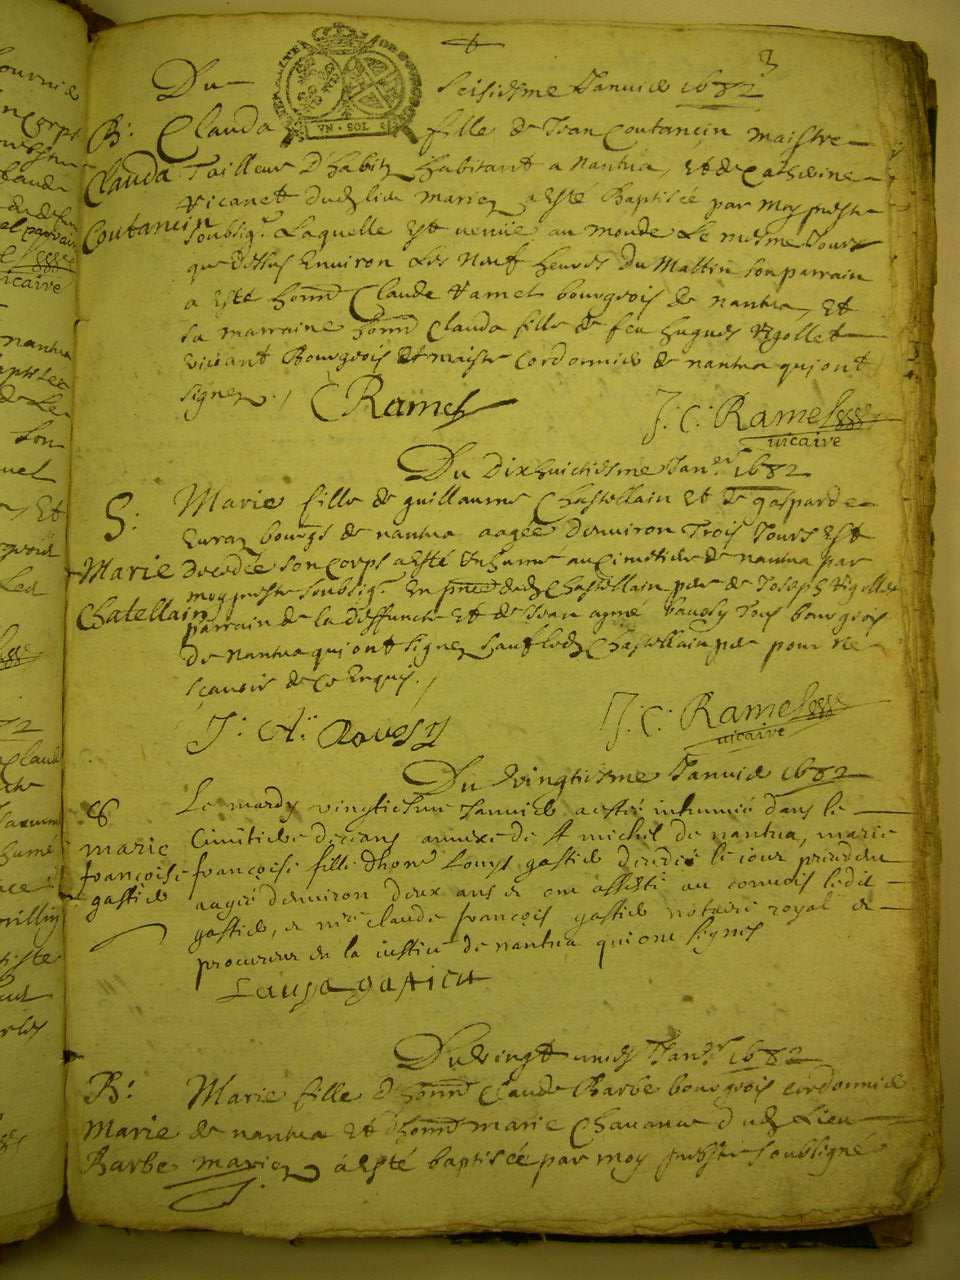 3
Du seisiesme Janvier 1682
UN · SOL
B: Clauda fille de Jean Coutancin maistre
Clauda
Coutancin
Tailleur d'habitz habitant a nantua, et de Catherine
vicanet dud lieu mariez a esté Baptisée par moy prestre
soubsig. Laquelle est venüe au monde le mesme jour
que dessus Environ les neuf heures du Mattin son parrain
a esté honn Claude Ramel bourgeois de nantua, Et
sa marraine honn Clauda fille de feu hugues
vivant Bourgeois et maistre Cordonnier de nantua qui ont
signez.
C Ramel
J. C. Ramel
vicaire
Du dixhuictiesme Jan. 1682
S:
Marie
Chatellain
Marie fille de guillaume Chastellain et de gasparde
bourgs de nantua aagée d'environ Trois Jours est
decedée son corps a esté Inhumé au cimetiere de nantua par
moy prestre soubsig. En dud Chastellain pere de Joseph
parrain de la deffuncte et de Jean aymé Ravesy Tous bourgeois
de nantua qui ont signez sauf led Chastellain pere pour ne
scavoir de ce Enquis.
J. A. Ravesy
J. C. Ramel
vicaire
Du vingtiesme Janvier 1682
S
marie
françoise
gastier
Le mardy vingtiesme Janvier a esté inhumée dans le
Cimitiere de ceans annexe de St michel de nantua, marie
françoise fille d'hon Louys gastier decedée le jour precedent
aagée d'environ deux ans et ont assisté au convois ledit
gastier, et mre claude françois gastier notaire royal et
procureur en la justice de nantua qui ont signes
gastier
Du vingt uniesme Jan. 1682
B:
Marie
Barbe
Marie fille d'honn Claude Barbe bourgeois cordonnier
de nantua et d'honn marie Chavanne dud Lieu
mariez à esté baptisée par moy prestre soubsigné